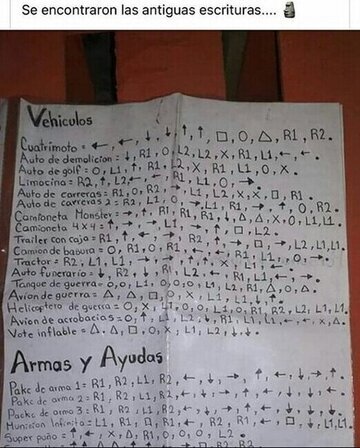 Se encontraron las antiguas escrituras....
Vehiculos
Cuatrimoto = ←, ←, ↓, ↓, ↑, ↑, □, O, △, R1, R2.
Auto de demolicion = ↓, R1, O, L2, L2, X, R1, L1, ←, ←.
Auto de golf = O, L1, ↑, R1, L2, X, R1, L1, O, X.
Limocina = R2, ↑, L2, ←, ←, R1, L1, O, →.
Auto de carreras = R1, O, R2, →, L1, L2, X, X, □, R1.
Auto de carreras 2 = R2, L1, O, →, L1, R1, →, ↑, O, R2.
Camioneta Monster = →, ↑, R1, R1, R1, ↓, △, △, X, O, L1, L1.
Camioneta 4x4 = ↑, →, →, L1, →, ↑, □, L2.
Trailer con caja = R1, ↑, ←, →, R2, ↑, →, □, →, L2, L1, L1.
Camion de basura = O, R1, O, R1, ←, ←, R1, L1, O, →.
Tractor = R2, L1, L1, →
Auto funerario = ↓, R2, ↓, R1, L2, ←, R1, L1, ←, →.
Tanque de guerra = O, O, L1, O, O, O, L1, L2, R1, △, O, △.
Avion de guerra = △, △, □, O, X, L1, L1, ↓, ↑.
Helicoptero de guerra = O, X, L1, O, O, L1, O, R1, R2, L2, L1, L1.
Avion de acrobacias = O, ↑, L1, L2, ↓, R1, L1, L1, ←, ←, X, △.
Vote inflable = △, △, □, O, X, L1, L2, ↓, ↓.
Armas y Ayudas
Pake de arma 1 = R1, R2, L1, R2, ←, ↓, →, ↑, ←, ↓, →, ↑.
Pake de arma 2 = R1, R2, L1, R2, ←, ↓, →, ↑, ←, ↓, ↓, ←.
Packe de arma 3 = R1, R2, L1, R2, ←, ↓, →, ↑, ←, ↓, ↓, ↓.
Municion Infinita = L1, R1, □, R1, ←, R2, R1, ←, □, ↓, L1, L1.
Super puño = ↑, ←, X, △, R1, O, O, O, L2.